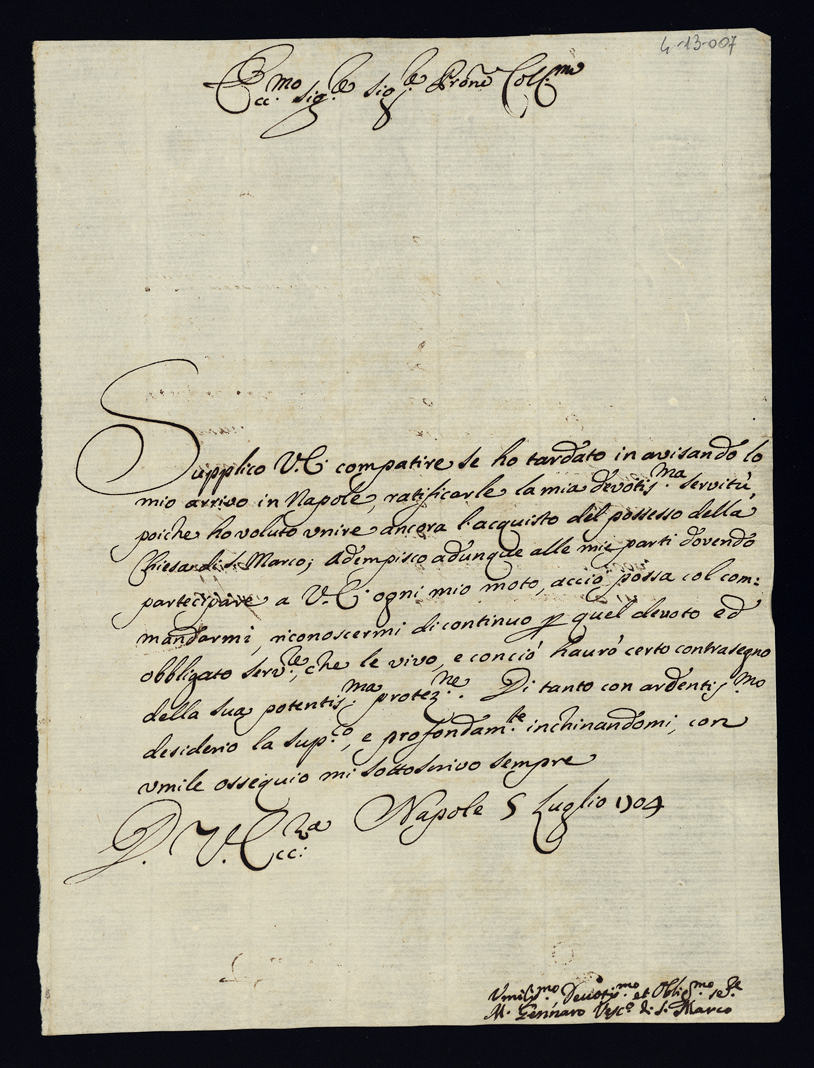 4-13-007
Ecc.mo Sig.re Sig.re Prone Col.mo
Supplico V.E. compatire se ho tardato in avisando lo
mio arrivo in Napole, ratificarle la mia devotis.ma servitù,
poiche ho voluto vnire ancora l'acquisto del possesso della
Chiesa di S. Marco; Adempisco adunque alle mie parti dovendo
partecipare a V.E. ogni mio moto, acciò possa col com:
mandarmi, riconoscermi di continuo p quel devoto ed
obbligato serv.re, che le vivo, e con ciò haurò certo contrasegno
della sua potentis.ma protez.ne. Di tanto con ardentis.mo
desiderio la sup.co, e profondam.te inchinandomi, con
vmile ossequio mi sottoscrivo sempre
D. V. Ecc.za Napole 5 Luglio 1704
Vmilis.mo Devotis.mo et Oblig.mo se.re
M. Gennaro Vesc.o di S. Marco